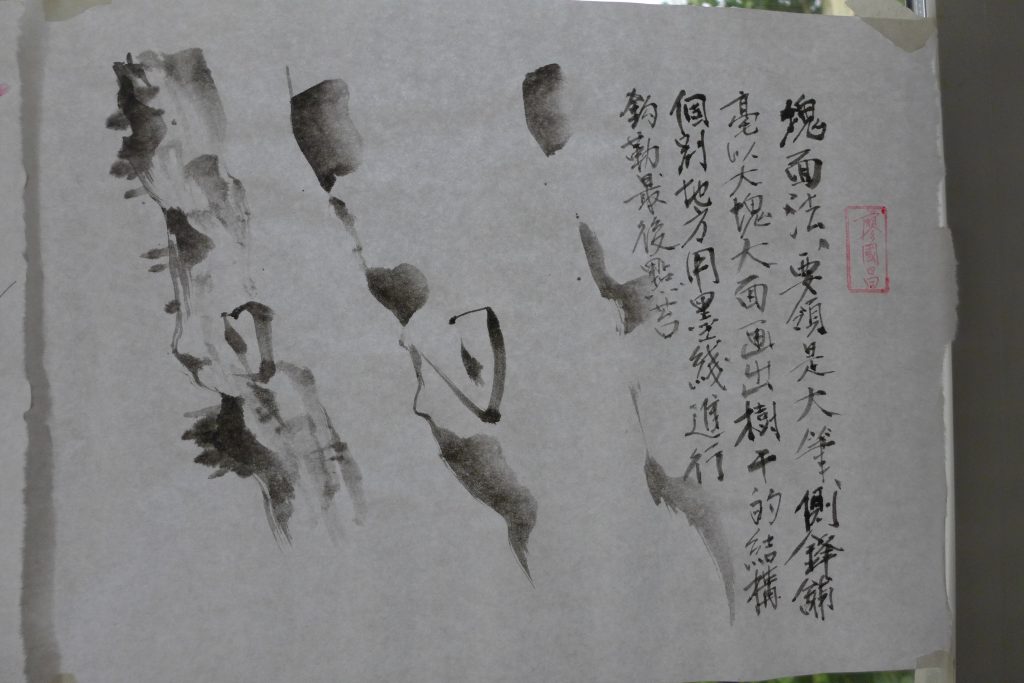 塊面法、要領是大筆側鋒鋪
毫以大塊大面画出樹干的結構
個别地方用墨綫進行
鈎勒最後點苔
廖國昌